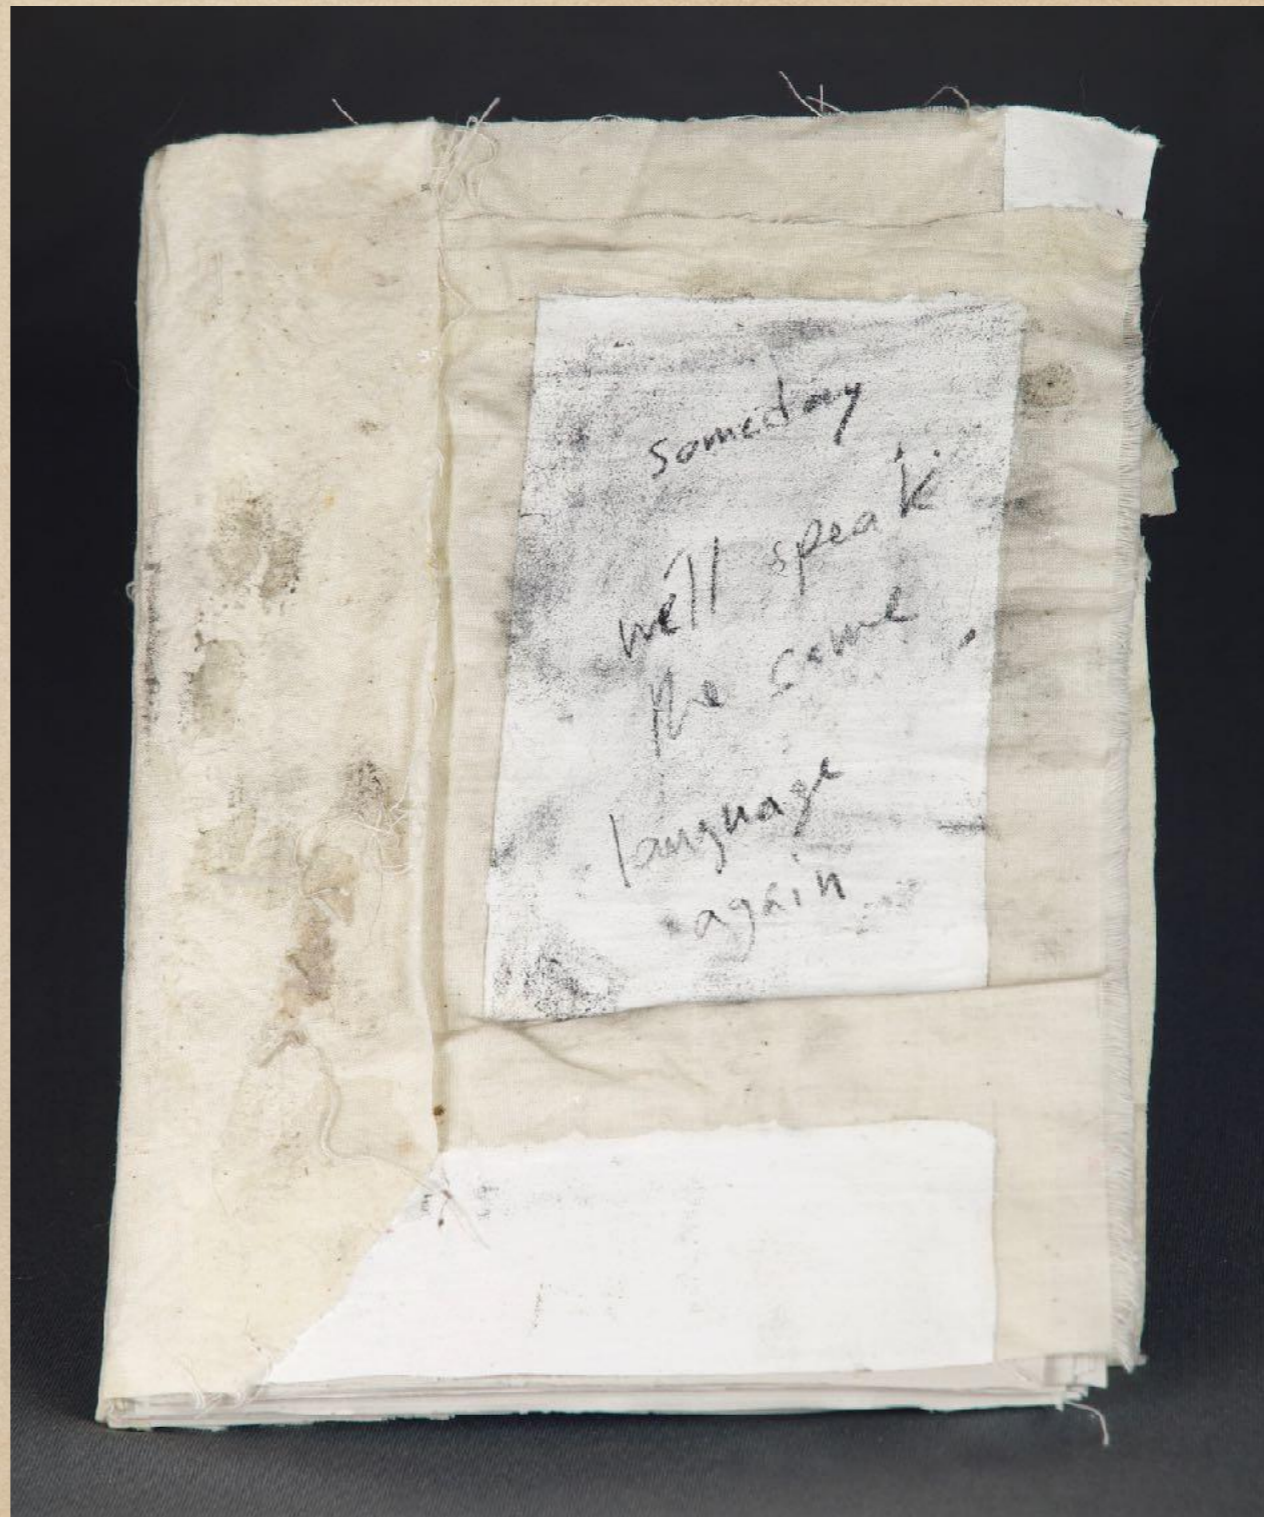 someday
we'll speak
the same
language
again